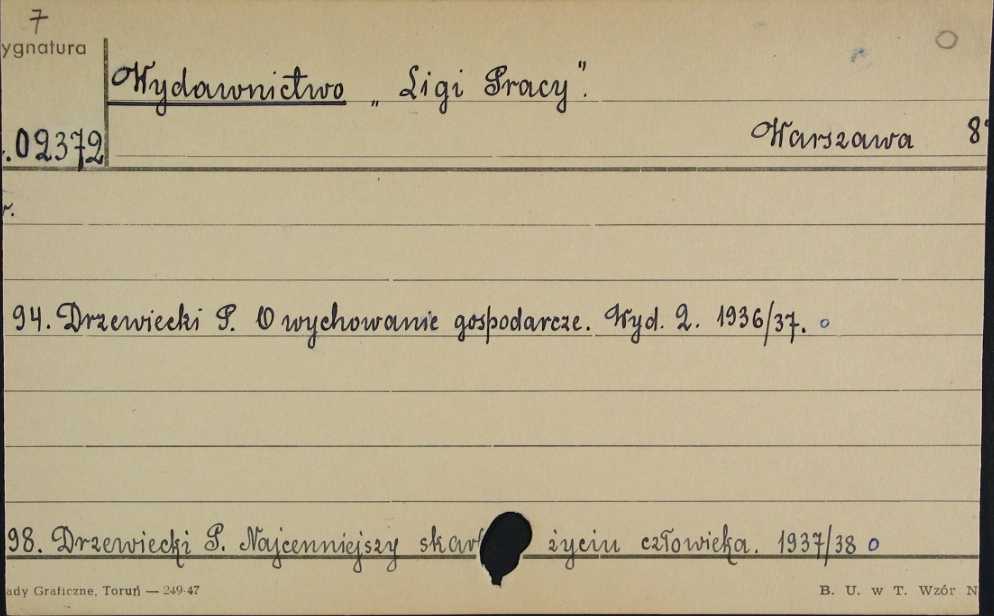 7
ygnatura
Wydawnictwo „Ligi Pracy".
.02372
Warszawa 8°
r.
94. Drzewiecki P. O wychowanie gospodarcze. Wyd. 2. 1936/37. o
98. Drzewiecki P. Najcenniejszy skar życiu człowieka. 1937/38 o
ady Graficzne, Toruń — 249-47
B. U. w T. Wzór N